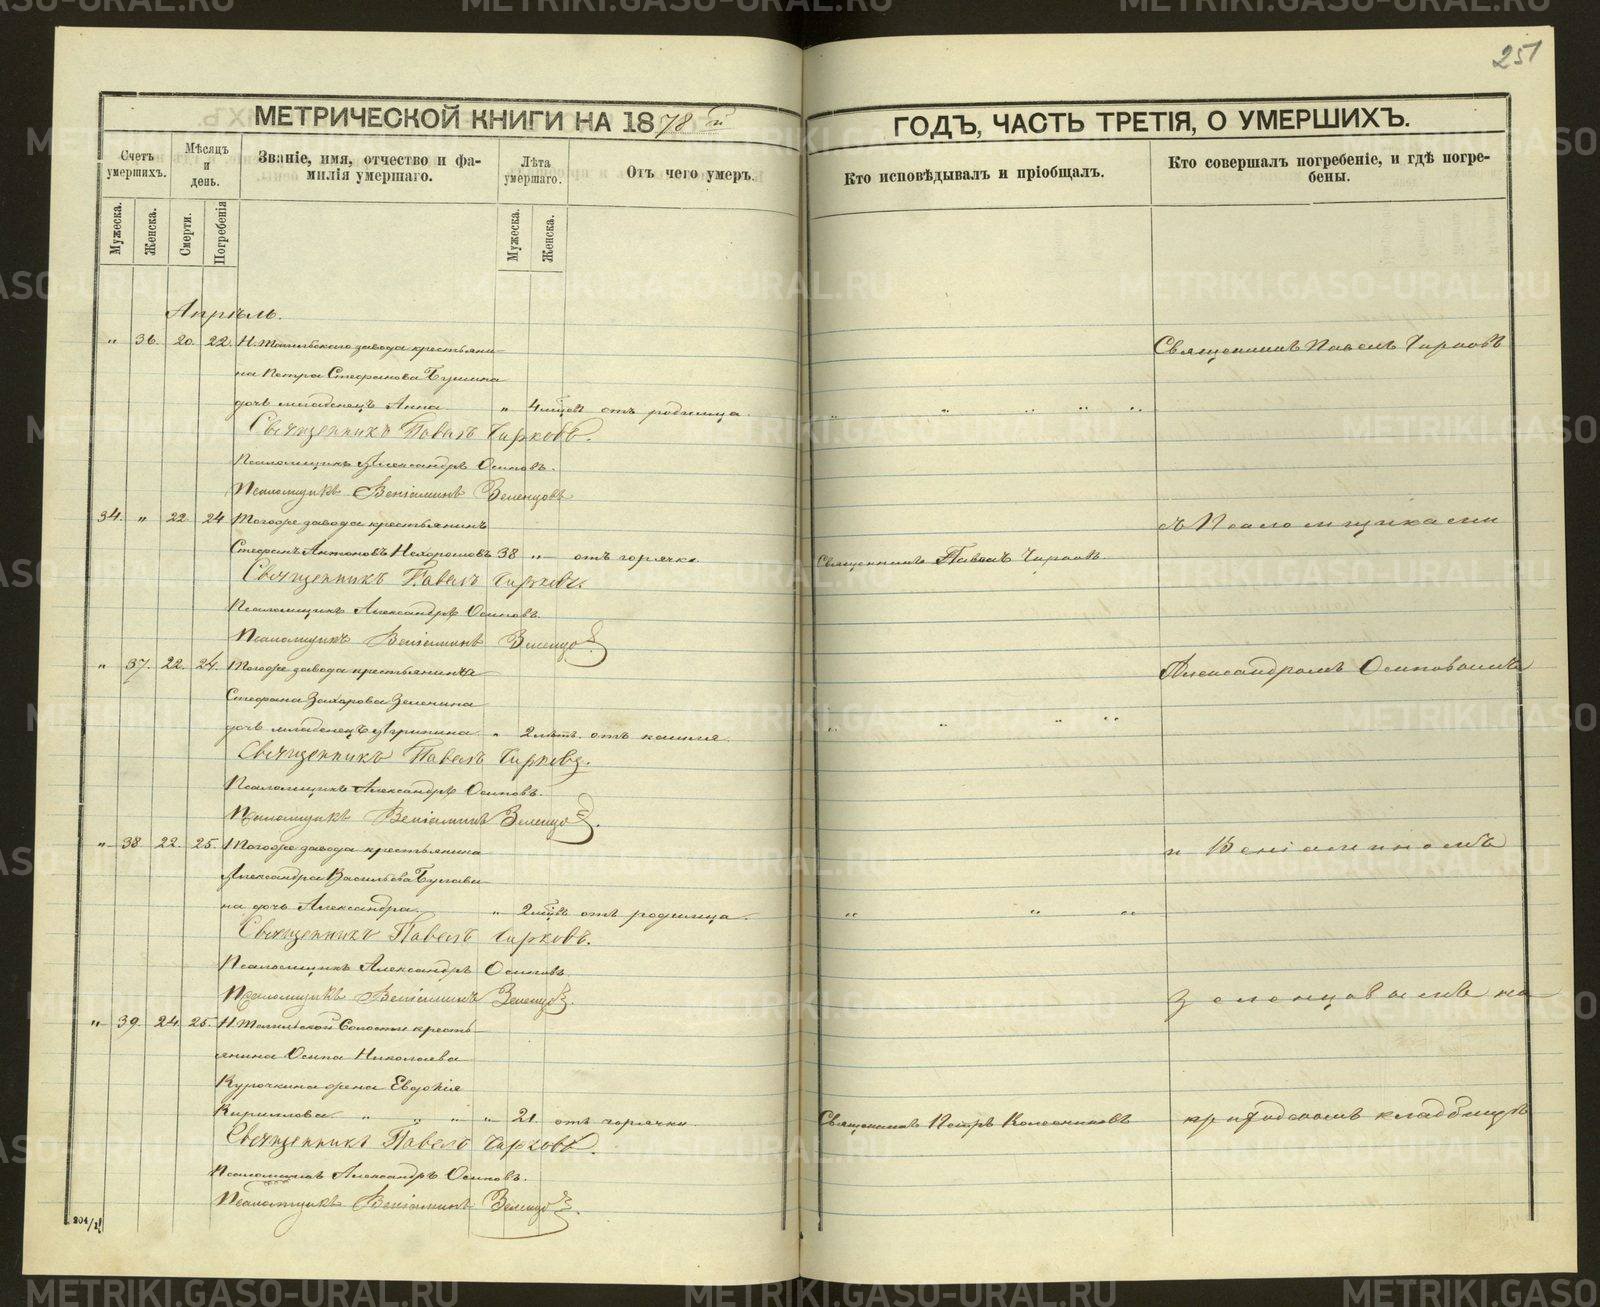 251
МЕТРИЧЕСКОЙ КНИГИ НА 1878й
ГОДЪ, ЧАСТЬ ТРЕТІЯ, О УМЕРШИХЪ.
Счетъ умершихъ.
Мѣсяцъ и день.
Званіе, имя, отчество и фа-
милія умершаго.
Лѣта умершаго.
Отъ чего умеръ.
Кто исповѣдывалъ и пріобщалъ.
Кто совершалъ погребеніе, и гдѣ погре-
бены.
Мужеска.
Женска.
Смерти.
Погребенія
Мужеска.
Женска.
Апрѣль.
„ 36. 20. 22. Н. Тагильскаго завода крестьяни-
на Петра Стефанова
дочь младенецъ Анна „ 4 мѣсц. отъ родимца.
Священникъ Павелъ Чирковъ.
Псаломщикъ Александръ Осиповъ.
Псаломщикъ Веніаминъ Зеленцовъ
34. „ 22. 24 Тогоже завода крестьянинъ
Стефанъ Антоновъ Нехорошковъ 38 „ отъ горячки.
Священникъ Павелъ Чирковъ
Священникъ Павелъ Чирковъ.
Псаломщикъ Александръ Осиповъ.
Псаломщикъ Веніаминъ Зеленцов
„ 37. 22. 24. Тогоже завода крестьянина
Стефана Захарова Зеленина
дочь младенецъ Агрипина „ 2 лѣтъ. отъ кашля.
Священникъ Павелъ Чирковъ.
Псаломщикъ Александръ Осиповъ.
Псаломщикъ Веніаминъ Зеленцов.
„ 38. 22. 25. Тогоже завода крестьянина
Александра Васильева
на дочь Александра. „ 2 мѣсц. отъ родимца.
Священникъ Павелъ Чирковъ.
Псаломщикъ Александръ Осиповъ
Псаломщикъ Веніаминъ Зеленцов.
„ 39. 24. 25. Н. Тагильской Волости кресть
янина Осипа Николаева
Курочкина жена Евдокія
Кириллова „ „ „ „ 21. отъ горячки.
Священникъ Петръ Колесниковъ
Священникъ Павелъ Чирковъ.
Псаломщикъ Александръ Осиповъ.
Псаломщикъ Веніаминъ Зеленцов.
Священникъ Павелъ Чирковъ
съ Псаломщиками
Александромъ Осиповымъ
и Веніаминомъ
Зеленцовымъ на
приходскомъ кладбищѣ
204/1
METRIKI.GASO-URAL.RU